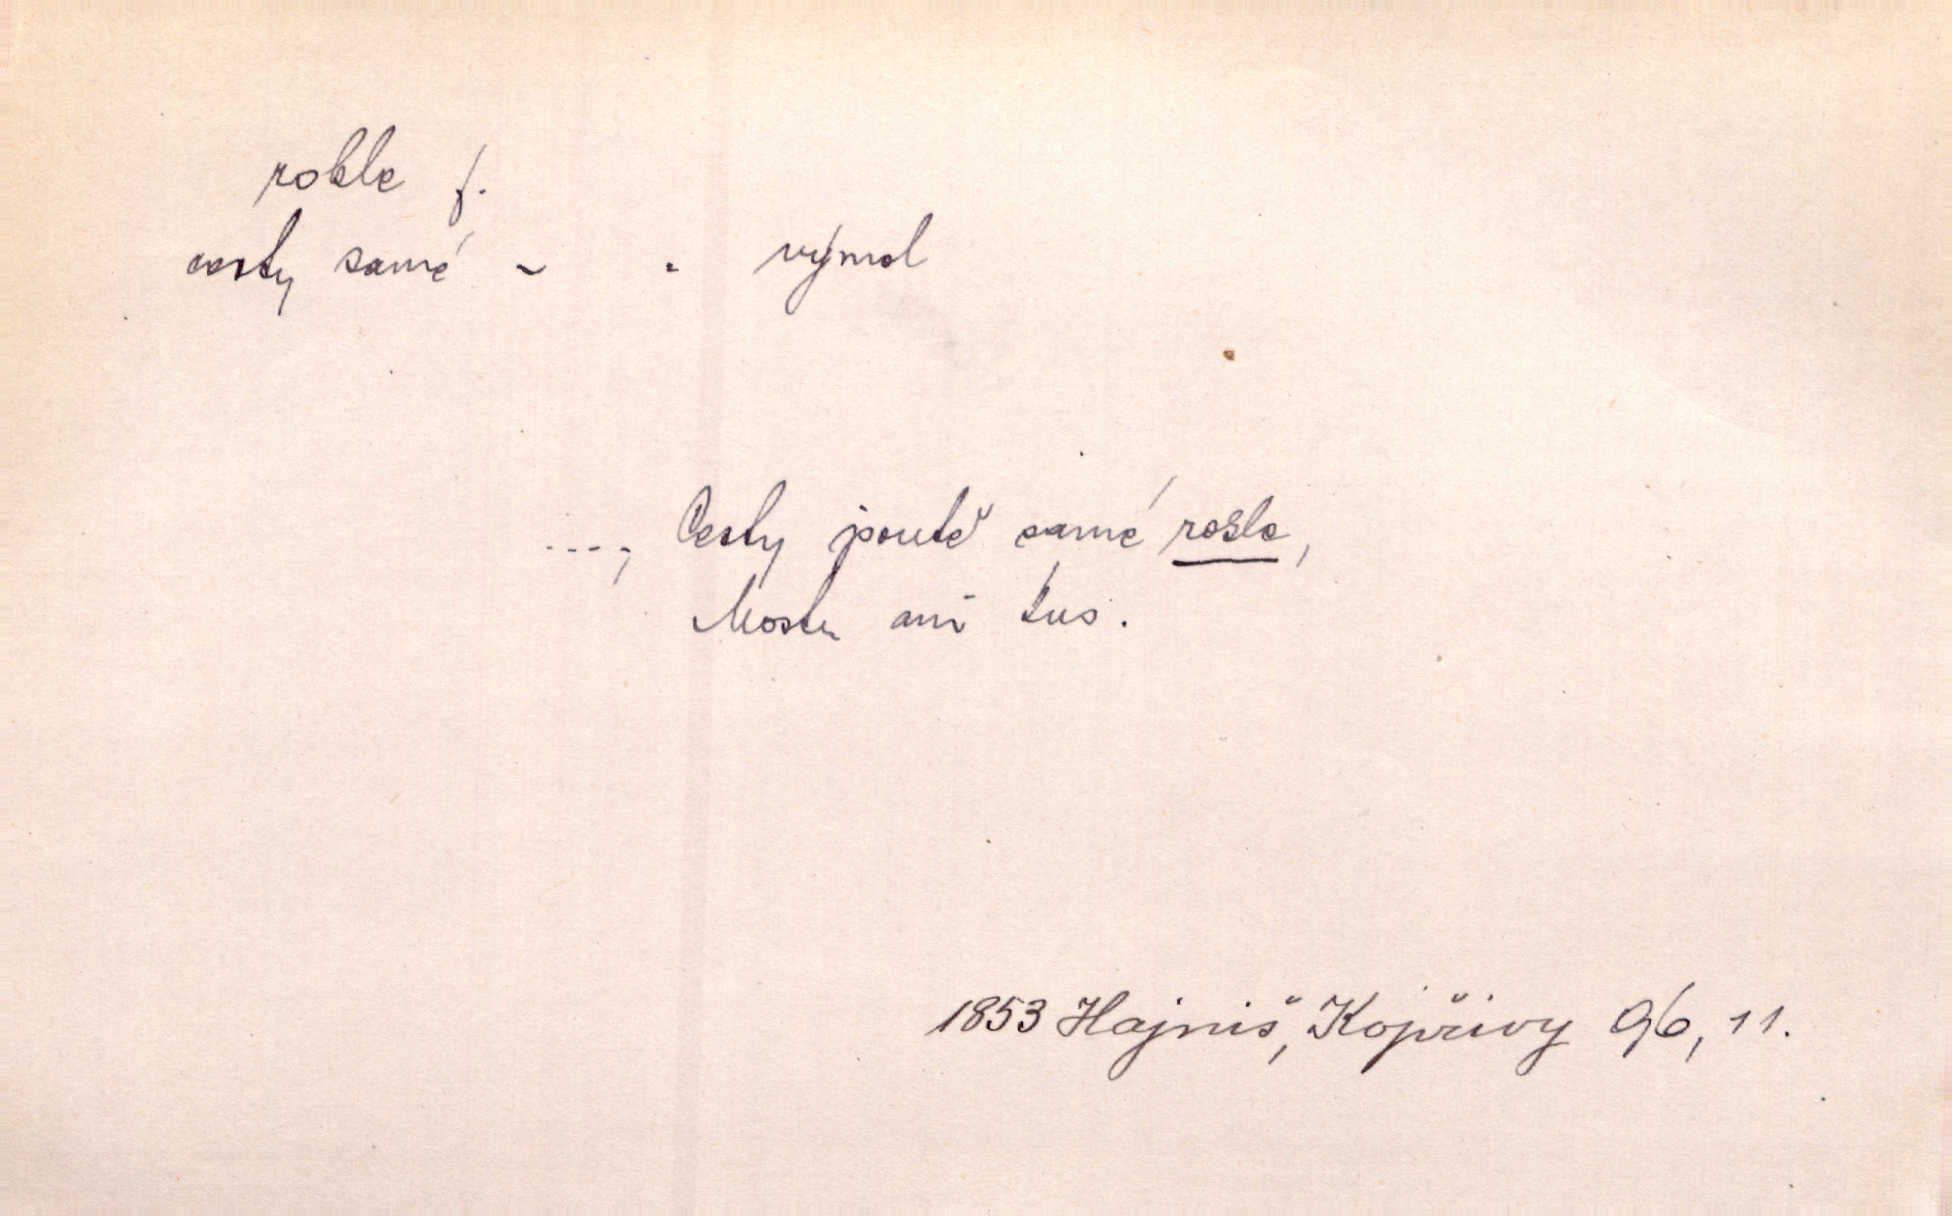 rokle f.
cesty samé - . výmol
...., Cesty pouhé samé rokle,
Mostu ani kus.
1853 Hajniš, Kopřivy 96, 11.